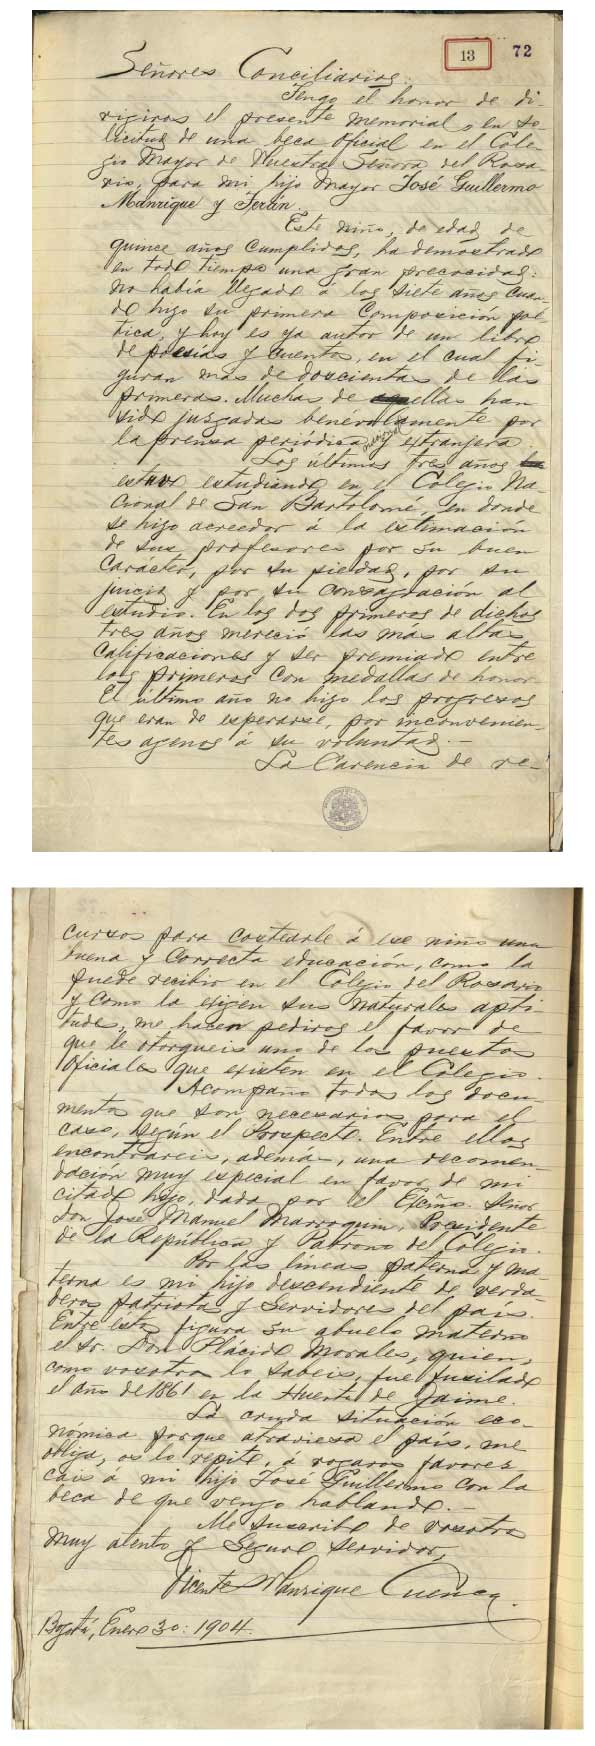 13
72
Señores Conciliarios:
Tengo el honor de di-
rigiros el presente memorial, en so-
licitud de una beca oficial en el Cole-
gio Mayor de Nuestra Señora del Rosa-
rio, para mi hijo mayor José Guillermo
Manrique y Terán.
Este niño, de edad de
quince años cumplidos, ha demostrado
en todo tiempo una gran precocidad:
no había llegado á los siete años cuan-
do hizo su primera composición poé-
tica, y hoy es ya autor de un libro
de poesías y cuentos, en el cual fi-
guran más de doscientas de las
primeras. Muchas de ellas han
sido juzgadas benévolamente por
la prensa periódica nacional y extranjera.
Los últimos tres años
estuvo estudiando en el Colegio Na-
cional de San Bartolomé, en donde
se hizo acreedor á la estimación
de sus profesores por su buen
carácter, por su piedad, por su
juicio y por su consagración al
estudio. En los dos primeros de dichos
tres años mereció las más altas
calificaciones y ser premiado entre
los primeros con medallas de honor.
El último año no hizo los progresos
que eran de esperarse, por inconvenien-
tes agenos á su voluntad.—
La carencia de re-
cursos para costearle á ese niño una
buena y correcta educación, como la
puede recibir en el Colegio del Rosario
y como la exigen sus naturales apti-
tudes, me hacen pediros el favor de
que le otorgueis uno de los puestos
oficiales que existen en el Colegio.
Acompaño todos los docu-
mentos que son necesarios para el
caso, según el Prospecto. Entre ellos
encontrareis, además, una recomen-
dación muy especial en favor de mi
citado hijo, dada por el Excmo. Señor
Don José Manuel Marroquin, Presidente
de la República y Patrono del Colegio.
Por las líneas paterna y ma-
terna es mi hijo descendiente de verda-
deros patriotas y servidores del país.
Entre estos figura su abuelo materno
el Sr. Don Plácido Morales, quien,
como vosotros lo sabeis, fue fusilado
el año de 1861 en la Huerta de Jaime.
La cruda situación eco-
nómica porque atraviesa el país, me
obliga, os lo repito, á rogaros favorez-
cais á mi hijo José Guillermo con la
beca de que vengo hablando.—
Me suscribo de vosotros
muy atento y seguro servidor,
Vicente Manrique Cuenca.
Bogotá, Enero 30: 1904.